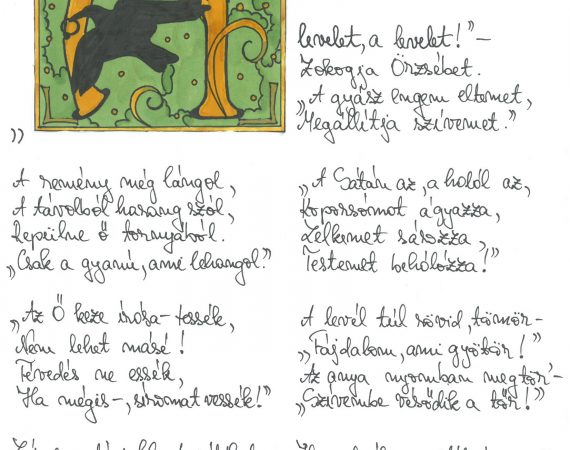 „A levelet, a levelet!”–
Zokogja Örzsébet.
„A gyász engem eltemet,
Megállítja szívemet.”
A remény még lángol,
A távolból harang szól,
Repülne ő tornyából.
„Csak a gyanú, ami lehangol.”
„Az Ő keze írása-tessék,
Nem lehet másé!
Tévedés ne essék,
Ha mégis-, síromat vessék!”
„A Sátán az, a holól az,
Koporsómat ágyazza,
Lelkemet sározza,
Testemet behálózza!”
A levél túl rövid, tömör-
„Fájdalom, ami gyötör!”
Az anya nyomban megtör'-
„Szívembe vésődik a tőr!”